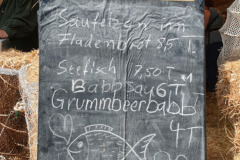 Saufetzen im
Fladenbrot 8,5 T
Steffisch 7,50 T
Babbsau 6 T
Grummbeerbabb
4 T